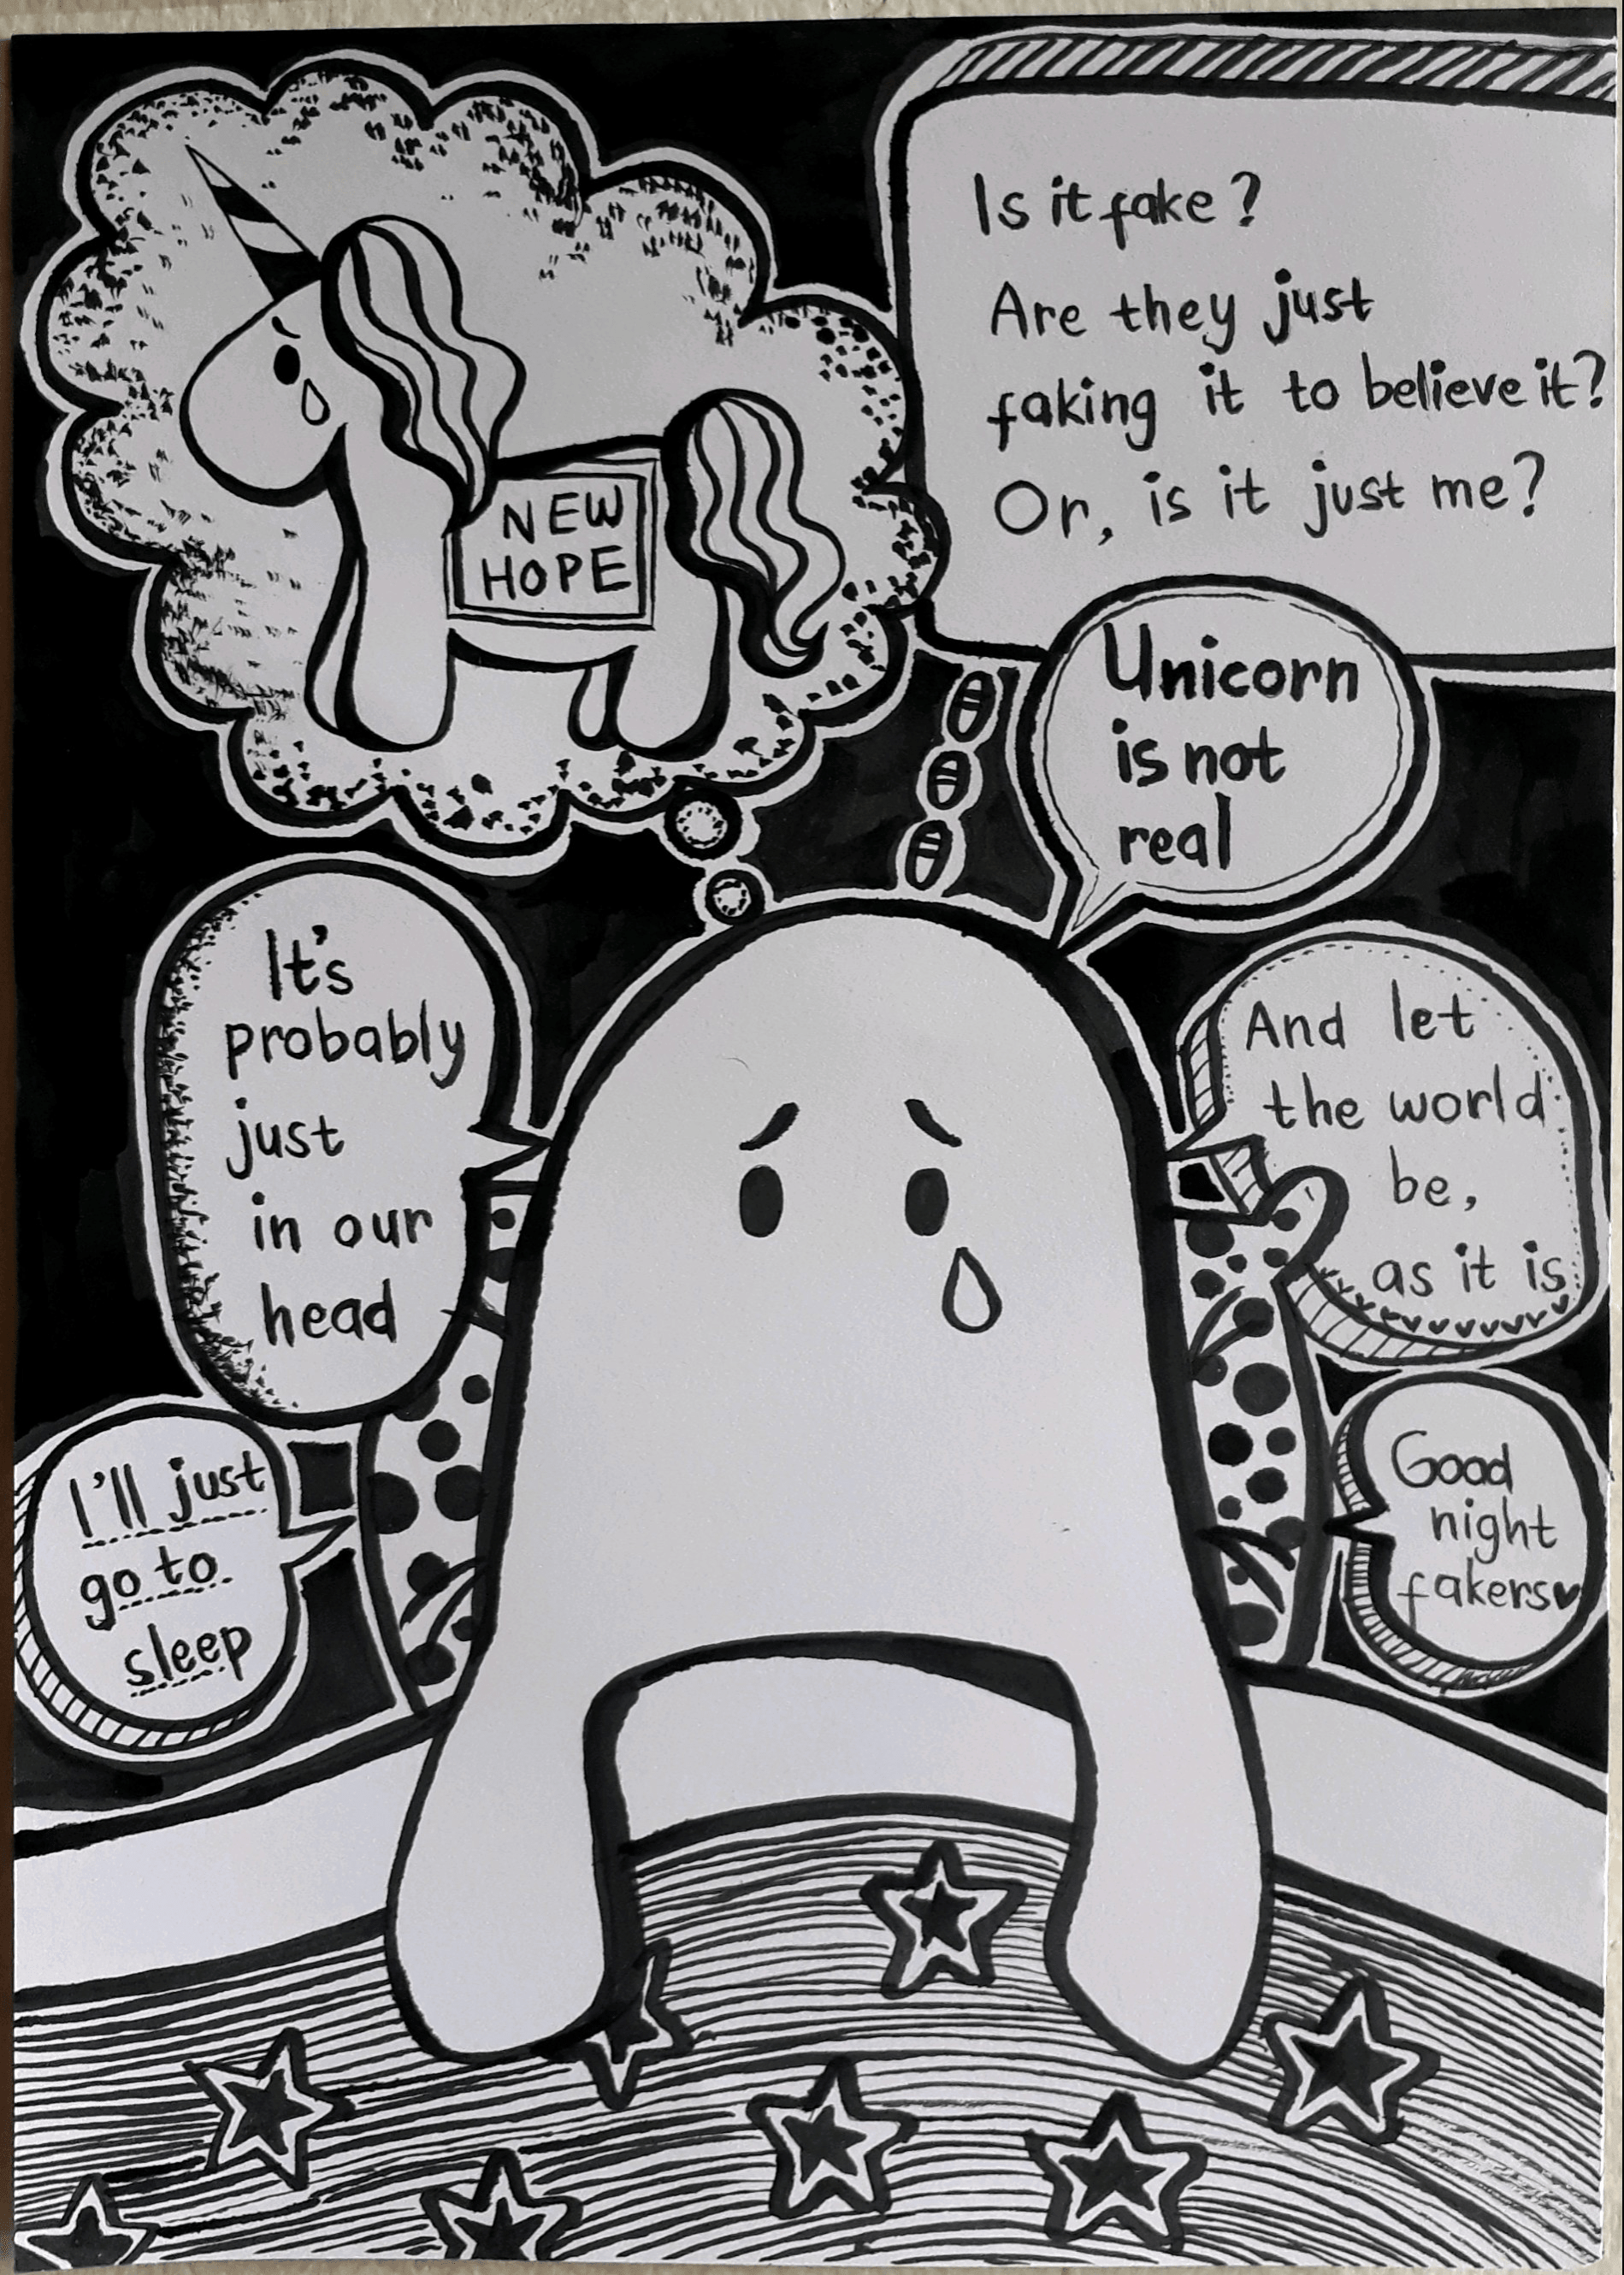 NEW
HOPE
Is it fake?
Are they just
faking it to believe it?
Or, is it just me?
Unicorn
is not
real
It's
probably
just
in our
head
And let
the world
be,
as it is
I'll just
go to
sleep
Good
night
fakers♥